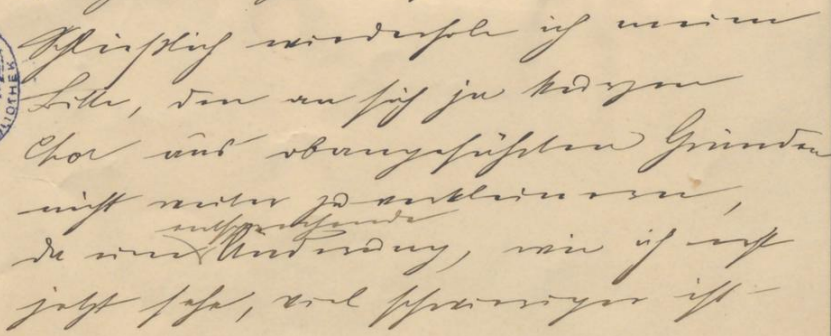 Schließlich wiederhole ich meine
Bitte, den an sich ja kurzen
Chor aus obangeführten Gründen
nicht weiter zu verkleinern,
entsprechende
da eine Änderung, wie ich erst
jetzt sehe, viel schwieriger ist
LIOTHEK